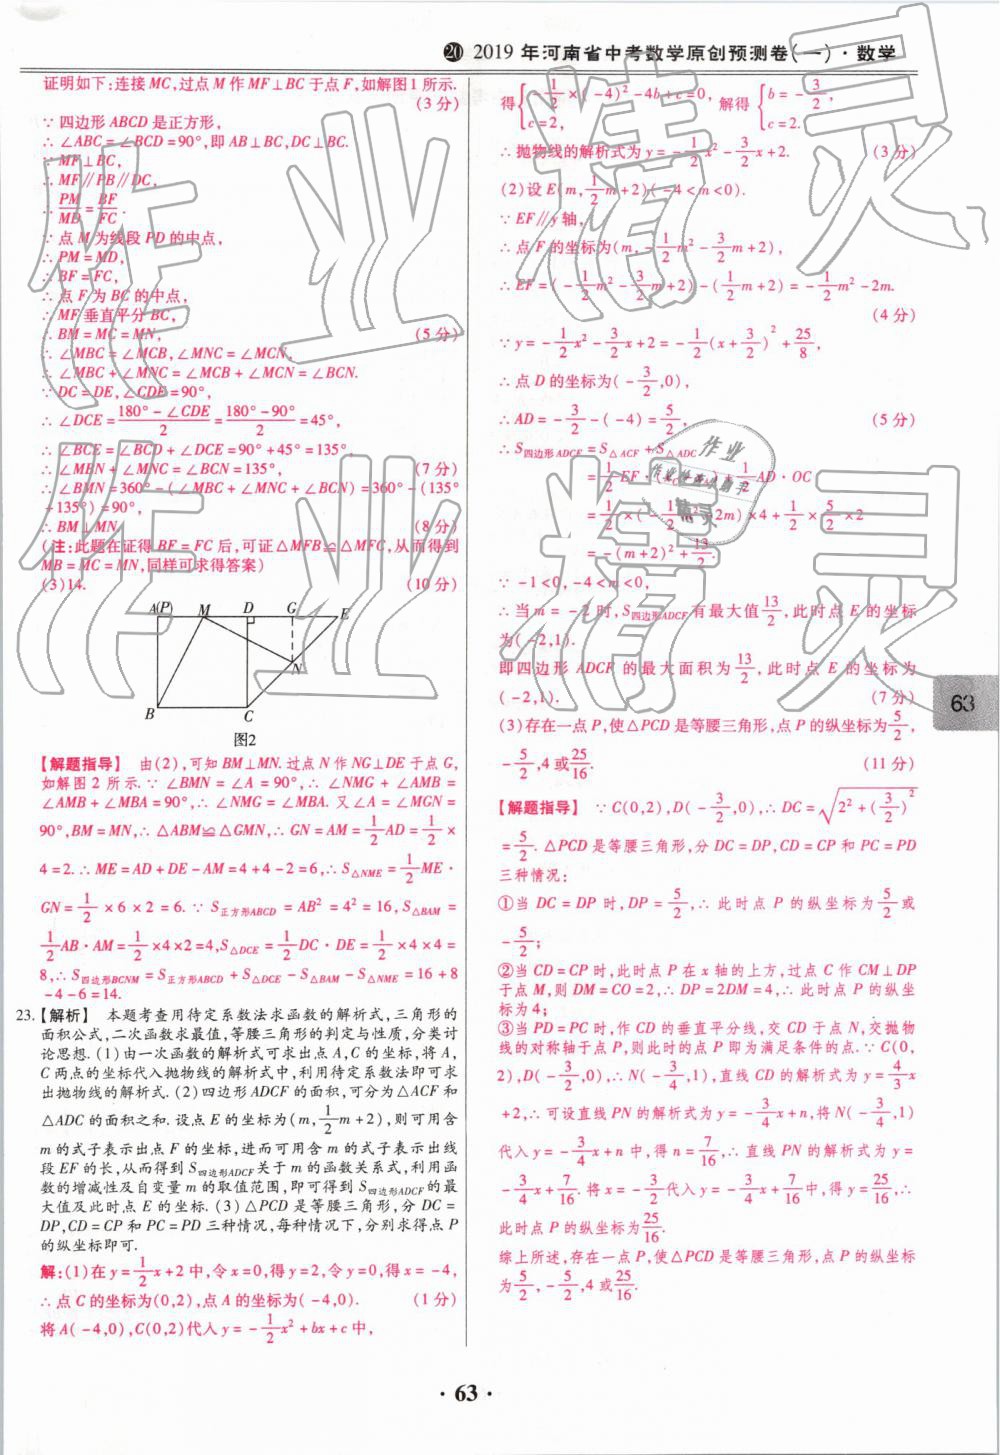 ⑳ 2019 年河南省中考数学原创预测卷(一)·数学
证明如下:连接 MC,过点 M 作 MF⊥BC 于点 F,如解图 1 所示.
(3 分)
∵ 四边形 ABCD 是正方形,
∴ ∠ABC = ∠BCD = 90°,即 AB⊥BC,DC⊥BC.
∵ MF⊥BC,
∴ MF∥PB∥DC,
∵ PM/MD = BF/FC.
∵ 点 M 为线段 PD 的中点,
∴ PM = MD,
∴ BF = FC,
∴ 点 F 为 BC 的中点,
∴ MF 垂直平分 BC,
∴ BM = MC = MN, (5 分)
∴ ∠MBC = ∠MCB,∠MNC = ∠MCN,
∴ ∠MBC + ∠MNC = ∠MCB + ∠MCN = ∠BCN.
∵ DC = DE,∠CDE = 90°,
∴ ∠DCE = (180° - ∠CDE)/2 = (180° - 90°)/2 = 45°,
∴ ∠BCE = ∠BCD + ∠DCE = 90° + 45° = 135°,
∴ ∠MBN + ∠MNC = ∠BCN = 135°, (7 分)
∴ ∠BMN = 360° - (∠MBC + ∠MNC + ∠BCN) = 360° - (135°
+ 135°) = 90°,
∴ BM⊥MN. (8 分)
(注:此题在证得 BF = FC 后,可证△MFB≌△MFC,从而得到
MB = MC = MN,同样可求得答案)
(3)14. (10 分)
A(P) M D G E
N
B C
图2
【解题指导】 由(2),可知 BM⊥MN. 过点 N 作 NG⊥DE 于点 G,
如解图 2 所示. ∵ ∠BMN = ∠A = 90°,∴ ∠NMG + ∠AMB =
∠AMB + ∠MBA = 90°,∴ ∠NMG = ∠MBA. 又∠A = ∠MGN =
90°,BM = MN,∴ △ABM≌△GMN,∴ GN = AM = 1/2 AD = 1/2 ×
4 = 2. ∴ ME = AD + DE - AM = 4 + 4 - 2 = 6,∴ S△NME = 1/2 ME ·
GN = 1/2 × 6 × 2 = 6. ∵ S正方形ABCD = AB² = 4² = 16,S△BAM =
1/2 AB · AM = 1/2 × 4 × 2 = 4,S△DCE = 1/2 DC · DE = 1/2 × 4 × 4 =
8,∴ S四边形BCNM = S正方形ABCD + S△DCE - S△BAM - S△NME = 16 + 8
- 4 - 6 = 14.
23.【解析】 本题考查用待定系数法求函数的解析式,三角形的
面积公式,二次函数求最值,等腰三角形的判定与性质,分类讨
论思想. (1)由一次函数的解析式可求出点 A,C 的坐标,将 A,
C 两点的坐标代入抛物线的解析式中,利用待定系数法即可求
出抛物线的解析式. (2)四边形 ADCF 的面积,可分为△ACF 和
△ADC 的面积之和. 设点 E 的坐标为(m, 1/2 m + 2),则可用含
m 的式子表示出点 F 的坐标,进而可用含 m 的式子表示出线
段 EF 的长,从而得到 S四边形ADCF关于 m 的函数关系式,利用函
数的增减性及自变量 m 的取值范围,即可得到 S四边形ADCF的最
大值及此时点 E 的坐标. (3)△PCD 是等腰三角形,分 DC =
DP,CD = CP 和 PC = PD 三种情况,每种情况下,分别求得点 P
的纵坐标即可.
解:(1)在 y = 1/2 x + 2 中,令 x = 0,得 y = 2,令 y = 0,得 x = -4,
∴ 点 C 的坐标为(0,2),点 A 的坐标为( -4,0). (1 分)
将 A( -4,0),C(0,2)代入 y = -1/2 x² + bx + c 中,
得{ -1/2 × ( -4)² - 4b + c = 0, c = 2, 解得{ b = -3/2, c = 2.
∴ 抛物线的解析式为 y = -1/2 x² - 3/2 x + 2. (3 分)
(2)设 E(m, 1/2 m + 2)( -4 < m < 0).
∵ EF∥y 轴,
∴ 点 F 的坐标为(m, -1/2 m² - 3/2 m + 2),
∴ EF = ( -1/2 m² - 3/2 m + 2) - (1/2 m + 2) = -1/2 m² - 2m.
(4 分)
∵ y = -1/2 x² - 3/2 x + 2 = -1/2 (x + 3/2)² + 25/8,
∴ 点 D 的坐标为( -3/2,0),
∴ AD = -3/2 - ( -4) = 5/2, (5 分)
∴ S四边形ADCF = S△ACF + S△ADC
= 1/2 EF · + 1/2 AD · OC
= 1/2 × ( -1/2 m² - 2m) × 4 + 1/2 × 5/2 × 2
= -(m + 2)² + 13/2.
∵ -1 < 0, -4 < m < 0,
∴ 当 m = -2 时,S四边形ADCF有最大值 13/2,此时点 E 的坐标
为( -2,1).
即四边形 ADCF 的最大面积为 13/2,此时点 E 的坐标为
( -2,1). (7 分)
(3)存在一点 P,使△PCD 是等腰三角形,点 P 的纵坐标为 5/2,
-5/2,4 或 25/16. (11 分)
【解题指导】 ∵ C(0,2),D( -3/2,0),∴ DC = √(2² + (3/2)²)
= 5/2. △PCD 是等腰三角形,分 DC = DP,CD = CP 和 PC = PD
三种情况:
①当 DC = DP 时,DP = 5/2,∴ 此时点 P 的纵坐标为 5/2 或
-5/2;
②当 CD = CP 时,此时点 P 在 x 轴的上方,过点 C 作 CM⊥DP
于点 M,则 DM = CO = 2,∴ DP = 2DM = 4,∴ 此时点 P 的纵坐
标为 4;
③当 PD = PC 时,作 CD 的垂直平分线,交 CD 于点 N,交抛物
线的对称轴于点 P,则此时的点 P 即为满足条件的点. ∵ C(0,
2),D( -3/2,0),∴ N( -3/4,1),直线 CD 的解析式为 y = 4/3 x
+ 2,∴ 可设直线 PN 的解析式为 y = -3/4 x + n,将 N( -3/4,1)
代入 y = -3/4 x + n 中,得 n = 7/16,∴ 直线 PN 的解析式为 y =
-3/4 x + 7/16. 将 x = -3/2 代入 y = -3/4 x + 7/16 中,得 y = 25/16,∴
此时点 P 的纵坐标为 25/16.
综上所述,存在一点 P,使△PCD 是等腰三角形,点 P 的纵坐标
为 5/2, -5/2,4 或 25/16.
63
· 63 ·
作业精灵
作业精灵
作业
精灵